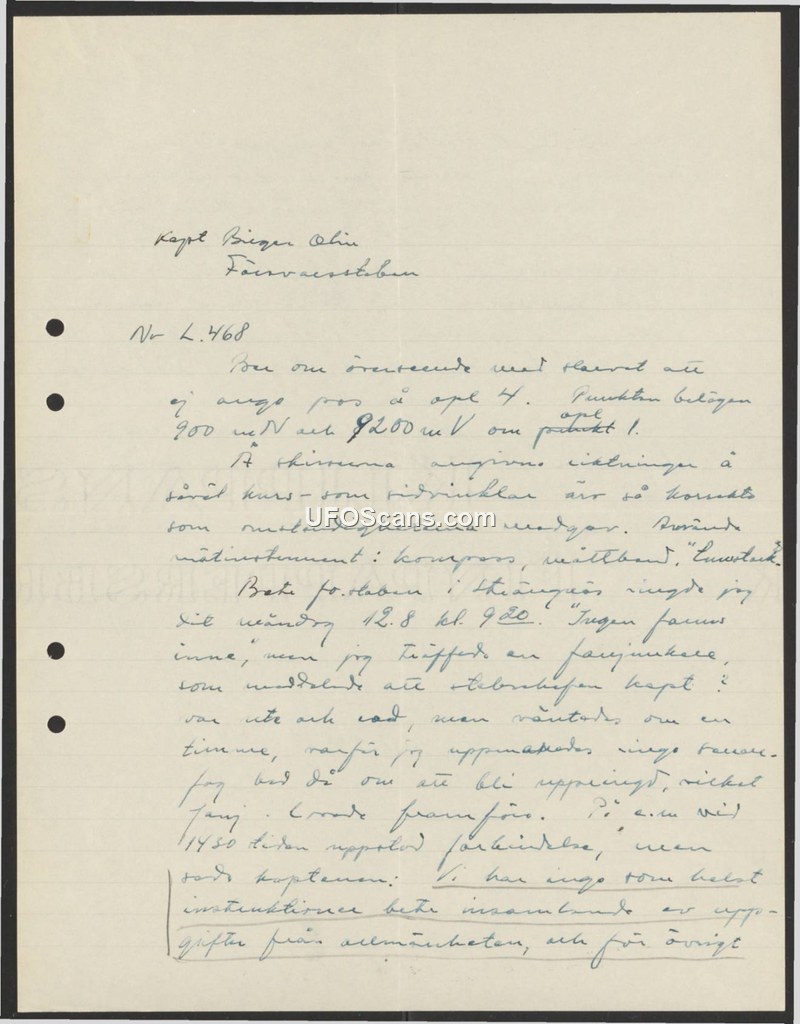 Kapt Birger Olin
Försvarsstaben
Nr L.468
Ber om överseende med slarvet att
ej ange pos å opl 4. Punkten belägen
900 m N och 9200 m V om punkt opl 1.
Å skisserna angivna riktningar å
såväl kurs- som sidvinklar äro så korrekta
som omständigheterna medgav. Använda
mätinstrument: kompass, måttband,
Betr fo.staben i Strängnäs ringde jag
dit måndag 12.8 kl. 9 20. "Ingen fanns
inne", men jag träffade en fanjunkare,
som meddelade att stabschefen kapt ?
var ute och red, men väntades om en
timme, varför jag uppmanades ringa senare.
Jag bad då om att bli uppringd, vilket
fanj. lovade framföra. På e.m vid
1430 tiden uppstod förbindelse, men
sade kaptenen: Vi har inga som helst
instruktioner betr insamlande av upp-
gifter från allmänheten, och för övrigt
UFOScans.com